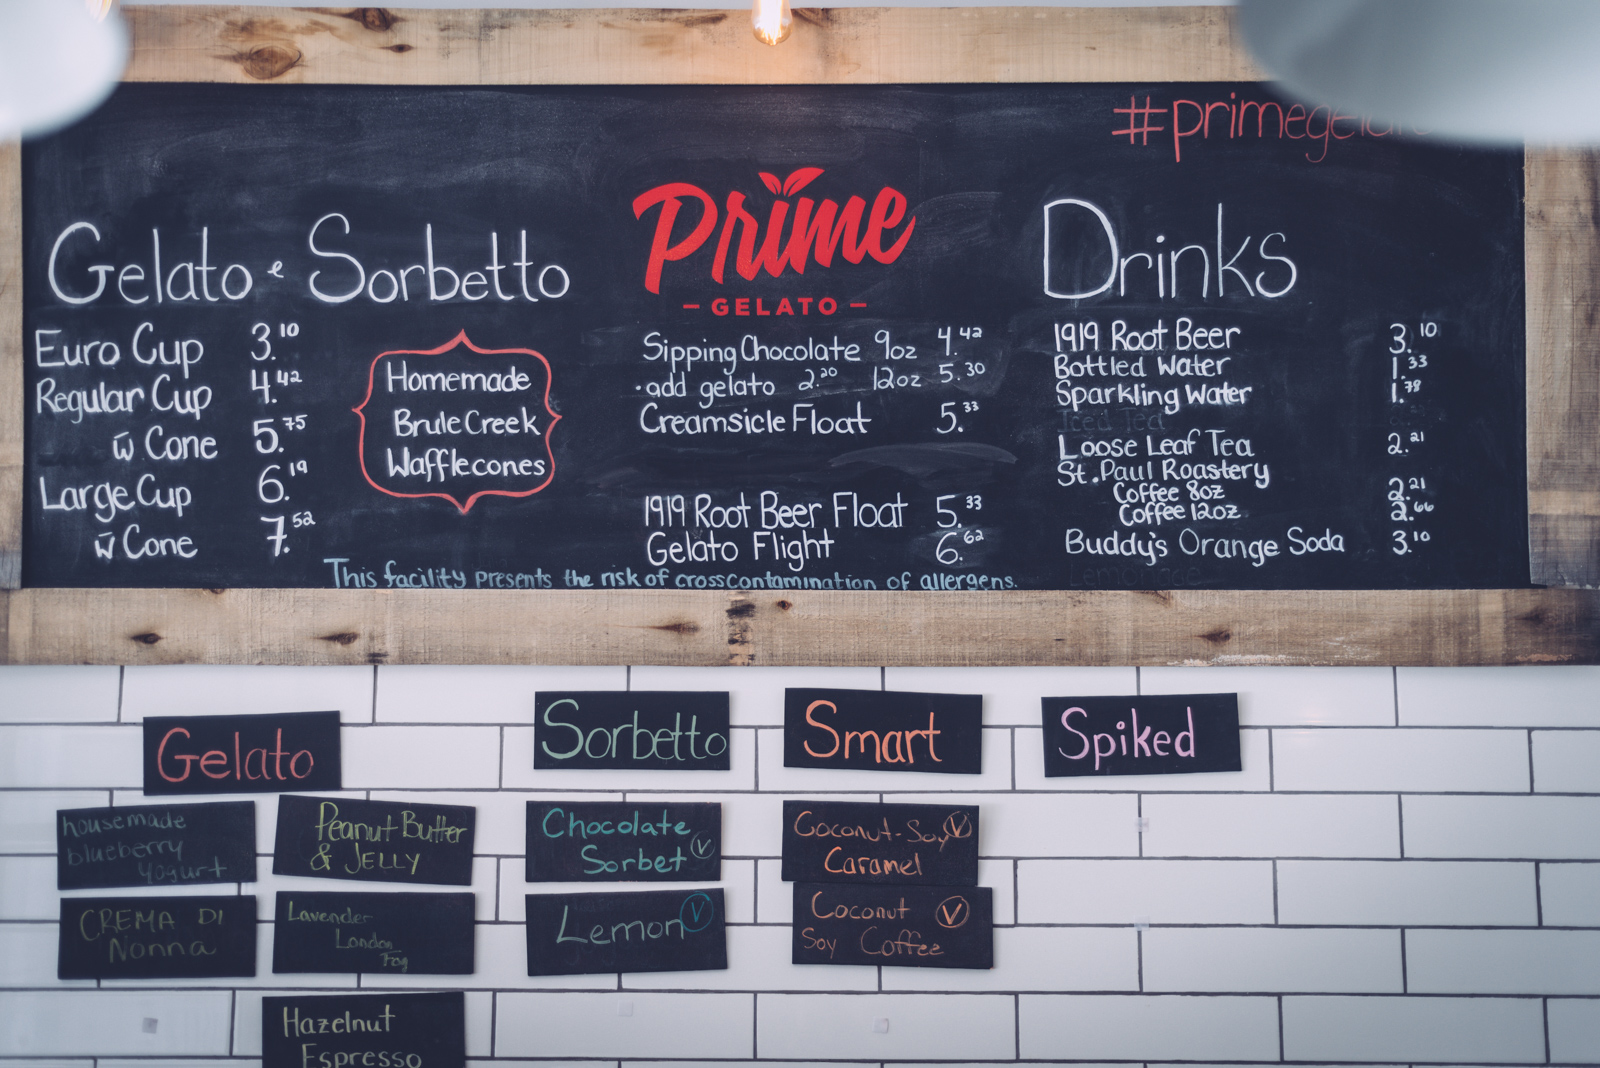 #primegelato
Gelato e Sorbetto
Euro Cup 3.10
Regular Cup 4.42
w̄ Cone 5.75
Large Cup 6.19
w̄ Cone 7.52
Homemade
Brule Creek
Wafflecones
Prime
- GELATO -
Sipping Chocolate 9oz 4.42
·add gelato 2.20 12oz 5.30
Creamsicle Float 5.33
1919 Root Beer Float 5.33
Gelato Flight 6.62
Drinks
1919 Root Beer 3.10
Bottled Water 1.33
Sparkling Water 1.78
Iced Tea
Loose Leaf Tea 2.21
St. Paul Roastery
Coffee 8oz 2.21
Coffee 12oz 2.66
Buddy's Orange Soda 3.10
Lemonade
This facility presents the risk of crosscontamination of allergens.
Gelato
housemade
blueberry
yogurt
Peanut Butter
& JELLY
CREMA DI
Nonna
Lavender
London
Fog
Hazelnut
Espresso
Sorbetto
Chocolate
Sorbet V
Lemon V
Smart
Coconut-Soy V
Caramel
Coconut V
Soy Coffee
Spiked